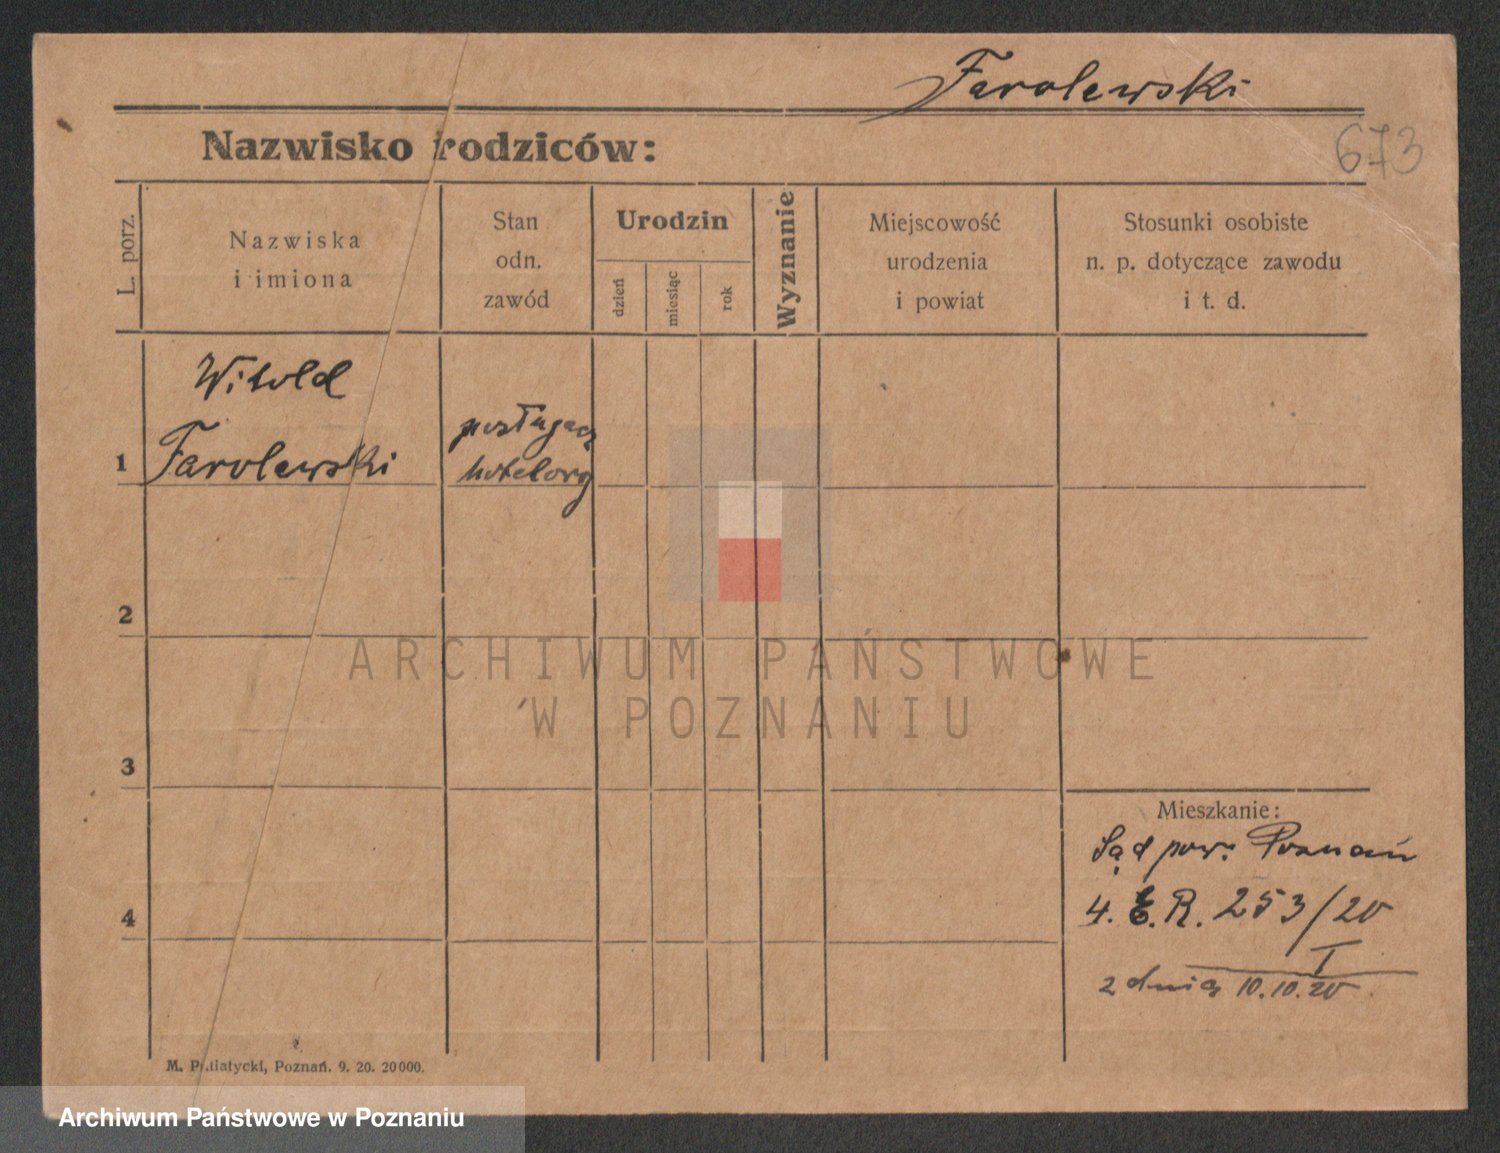 Farolewski
673
Nazwisko rodziców:
L. porz.
Nazwiska
i imiona
Stan
odn.
zawód
Urodzin
dzień
miesiąc
rok
Wyznanie
Miejscowość
urodzenia
i powiat
Stosunki osobiste
n. p. dotyczące zawodu
i t. d.
1
Witold
Farolewski
posługacz
hotelowy
2
3
4
ARCHIWUM PAŃSTWOWE
W POZNANIU
Mieszkanie:
Sąd pow. Poznań
4. E. R. 253/20
I
z dnia 10.10.20.
M. Putiatycki, Poznań. 9. 20. 20000.
Archiwum Państwowe w Poznaniu